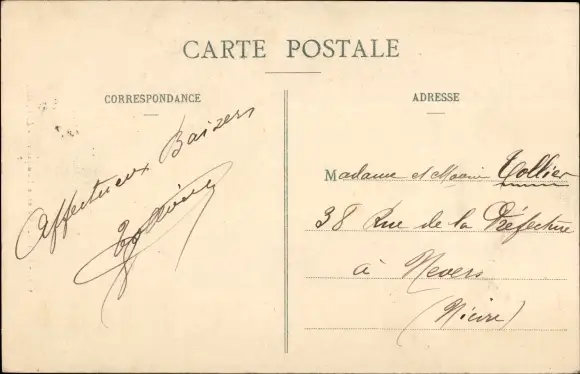 CARTE POSTALE
CORRESPONDANCE
Affectueux Baisers
ADRESSE
Madame et Tollier
38 Rue de la Préfecture
à Nevers
(Nièvre)